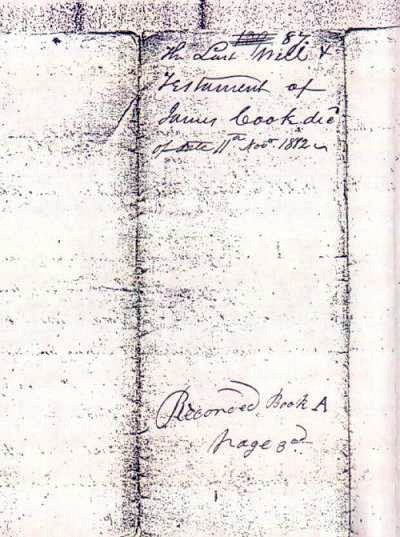 87
The Last Will &
Testament of
James Cook dec
of date 11th Novr 1812
Recorded Book A
page 3d